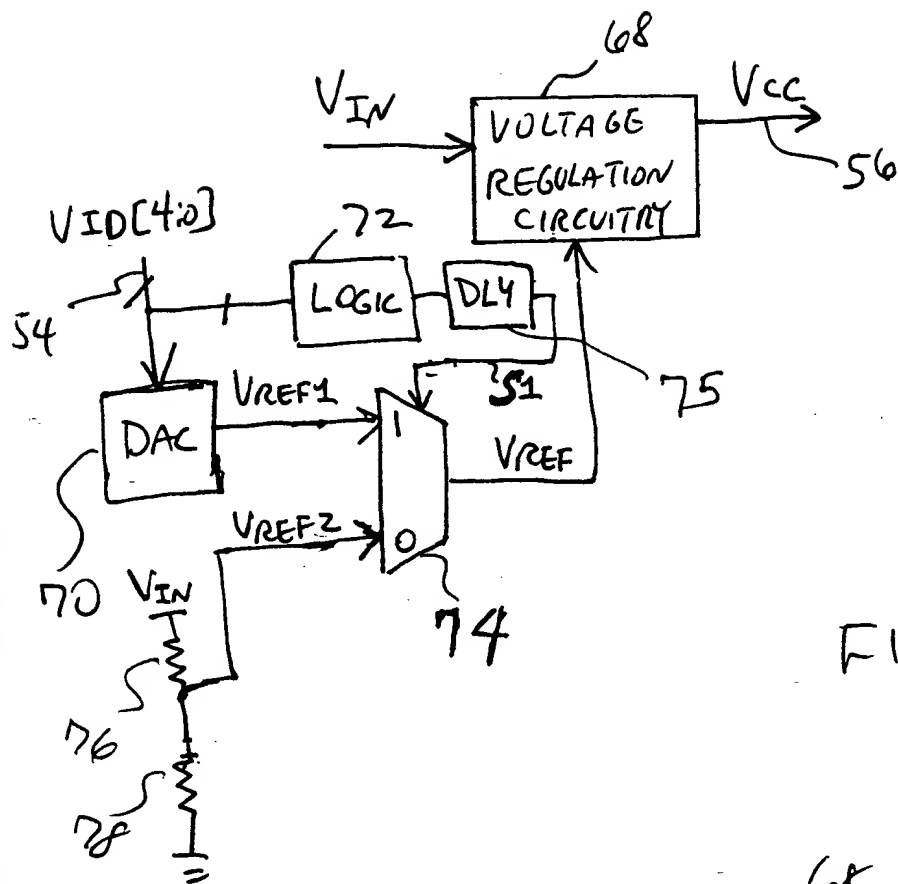 68
VIN
VCC
VOLTAGE
REGULATION
CIRCUITRY
56
VID[4:0]
72
54
LOGIC
DLY
75
S1
VREF1
DAC
1
VREF
VREF2
0
70
VIN
74
FI
76
78
68